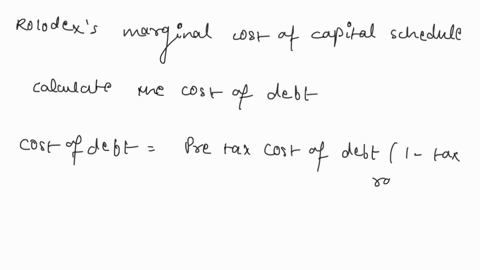 Rolodex's marginal cost of capital schedule
calculate the cost of debt
cost of debt = Pre tax cost of debt (1- tax
ro